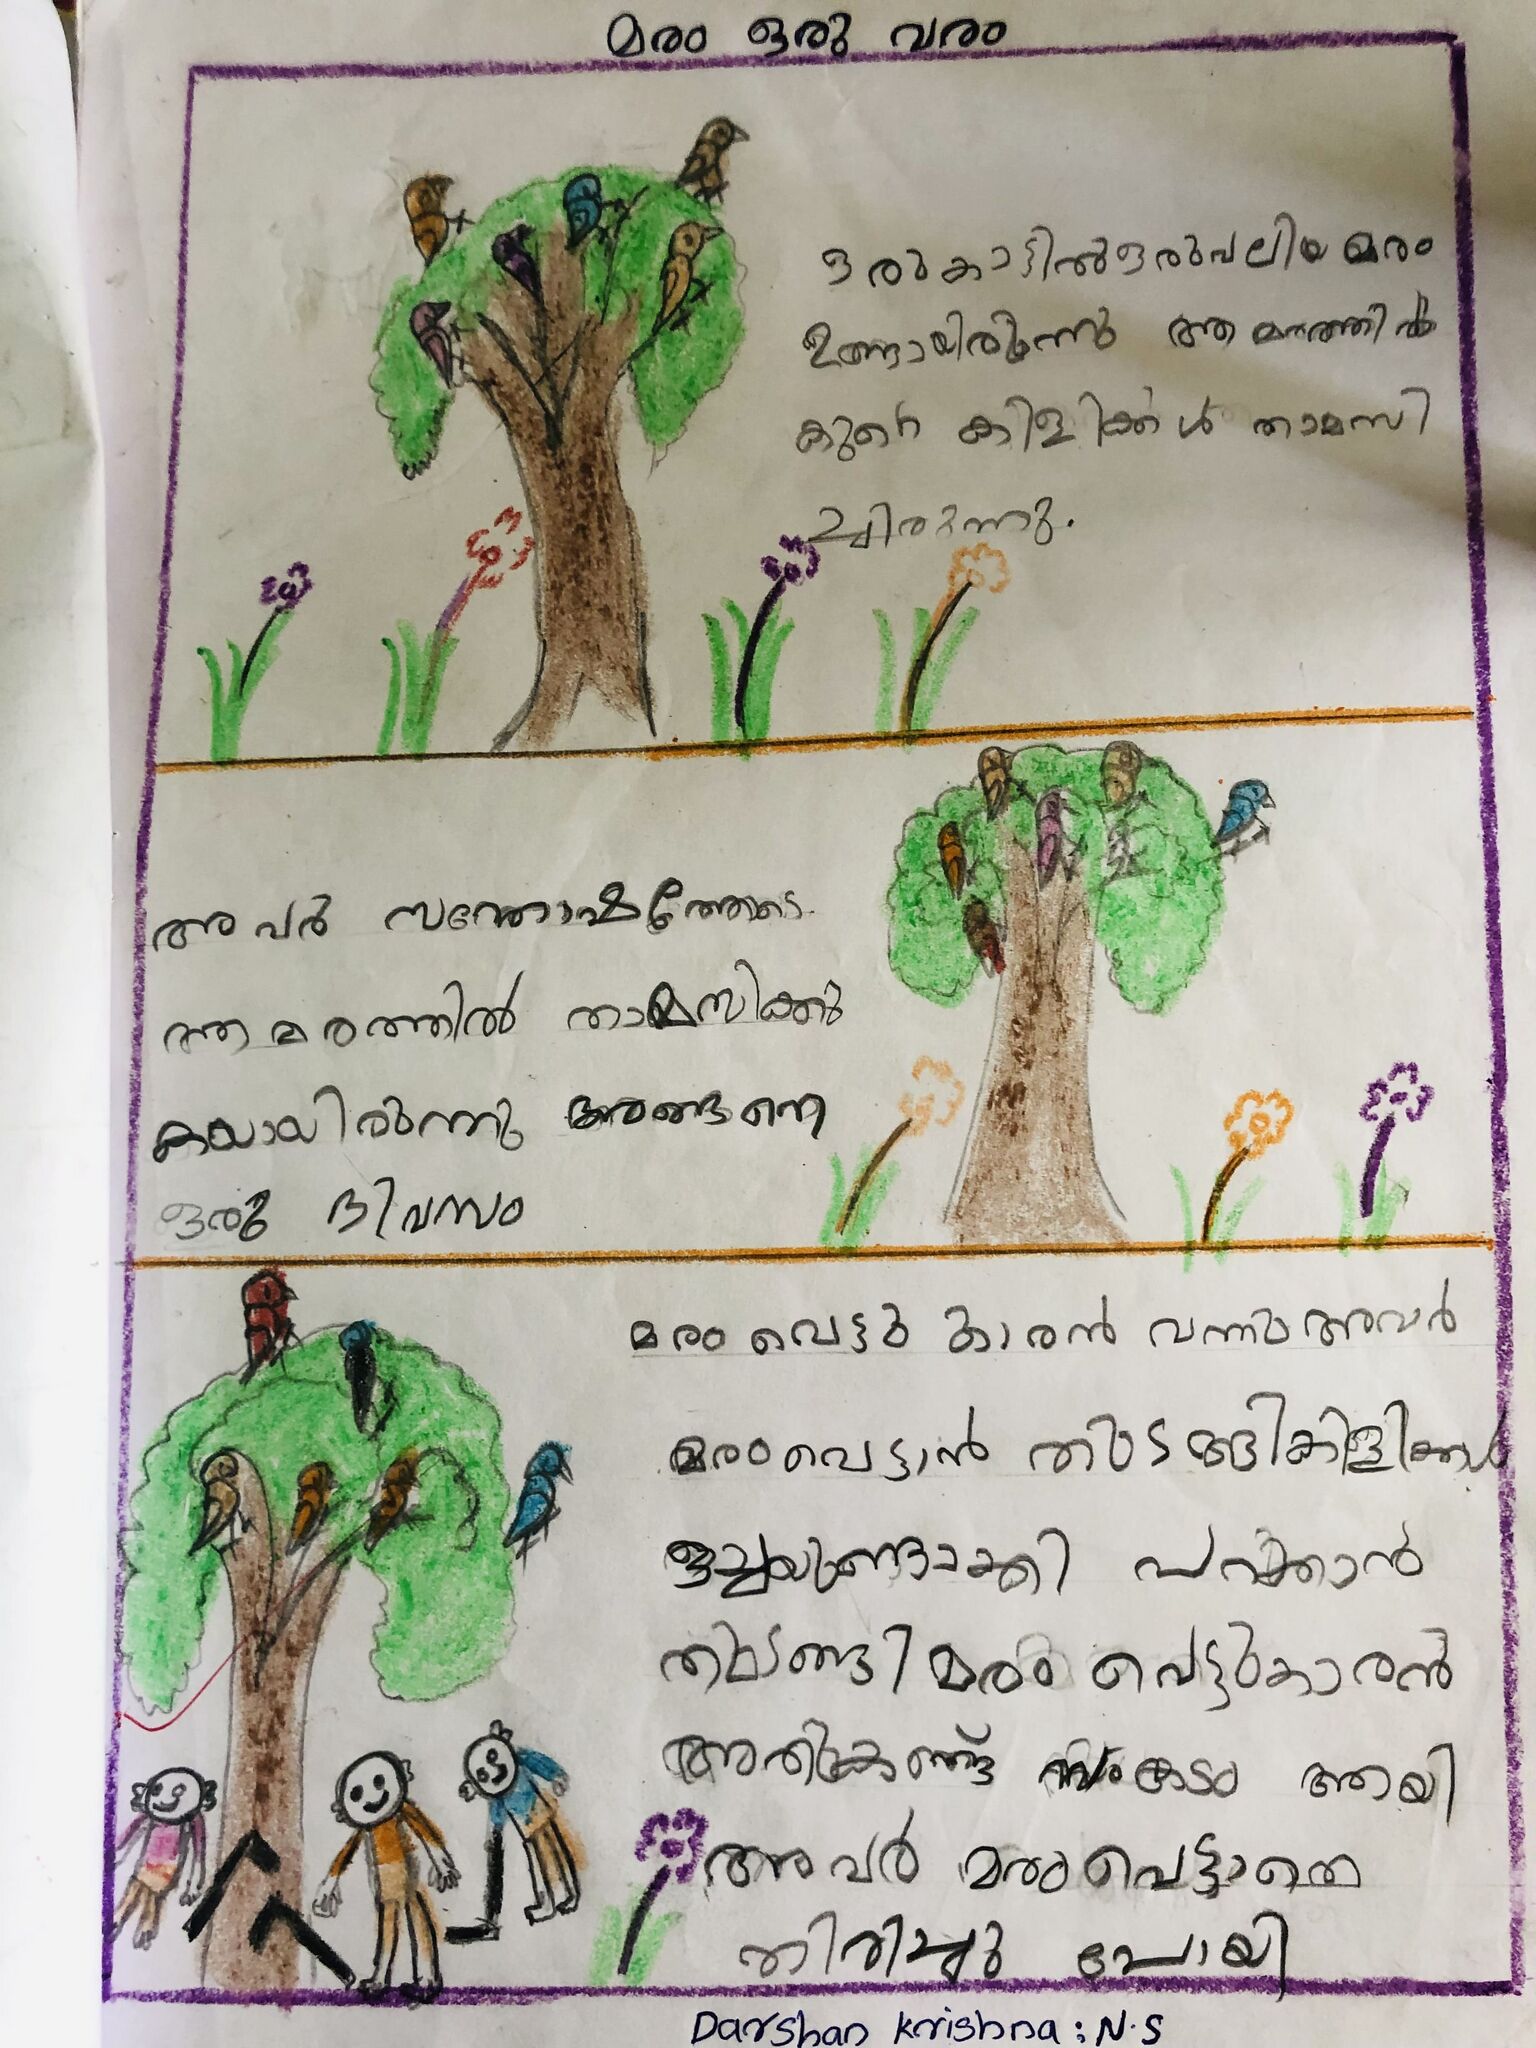 മരം ഒരു വരം
ഒരു കാട്ടിൽ ഒരു വലിയ മരം
ഉണ്ടായിരുന്നു ആ മരത്തിൽ
കുറെ കിളികൾ താമസി
ച്ചിരുന്നു.
അവർ സന്തോഷത്തോടെ
ആ മരത്തിൽ താമസിക്കു
കയായിരുന്നു അങ്ങനെ
ഒരു ദിവസം
മരം വെട്ടു കാരൻ വന്നു അവർ
മരം വെട്ടാൻ തുടങ്ങി കിളികൾ
ഒച്ചയുണ്ടാക്കി പറക്കാൻ
തുടങ്ങി മരം വെട്ടുകാരൻ
അതുകണ്ട് സങ്കടം ആയി
അവർ മരം വെട്ടാതെ
തിരിച്ചു പോയി
Darshan Krishna : N.S